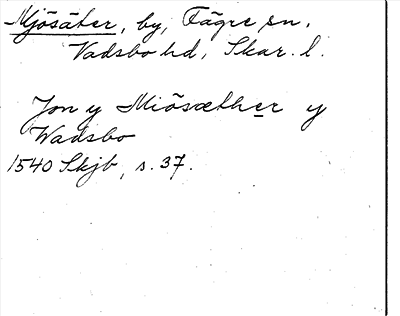 Mjösäter, by, Fägre sn,
Vadsbo hd, Skar. l.
Jon y Miösæther y
Wadsbo
1540 Skjb, s. 37.